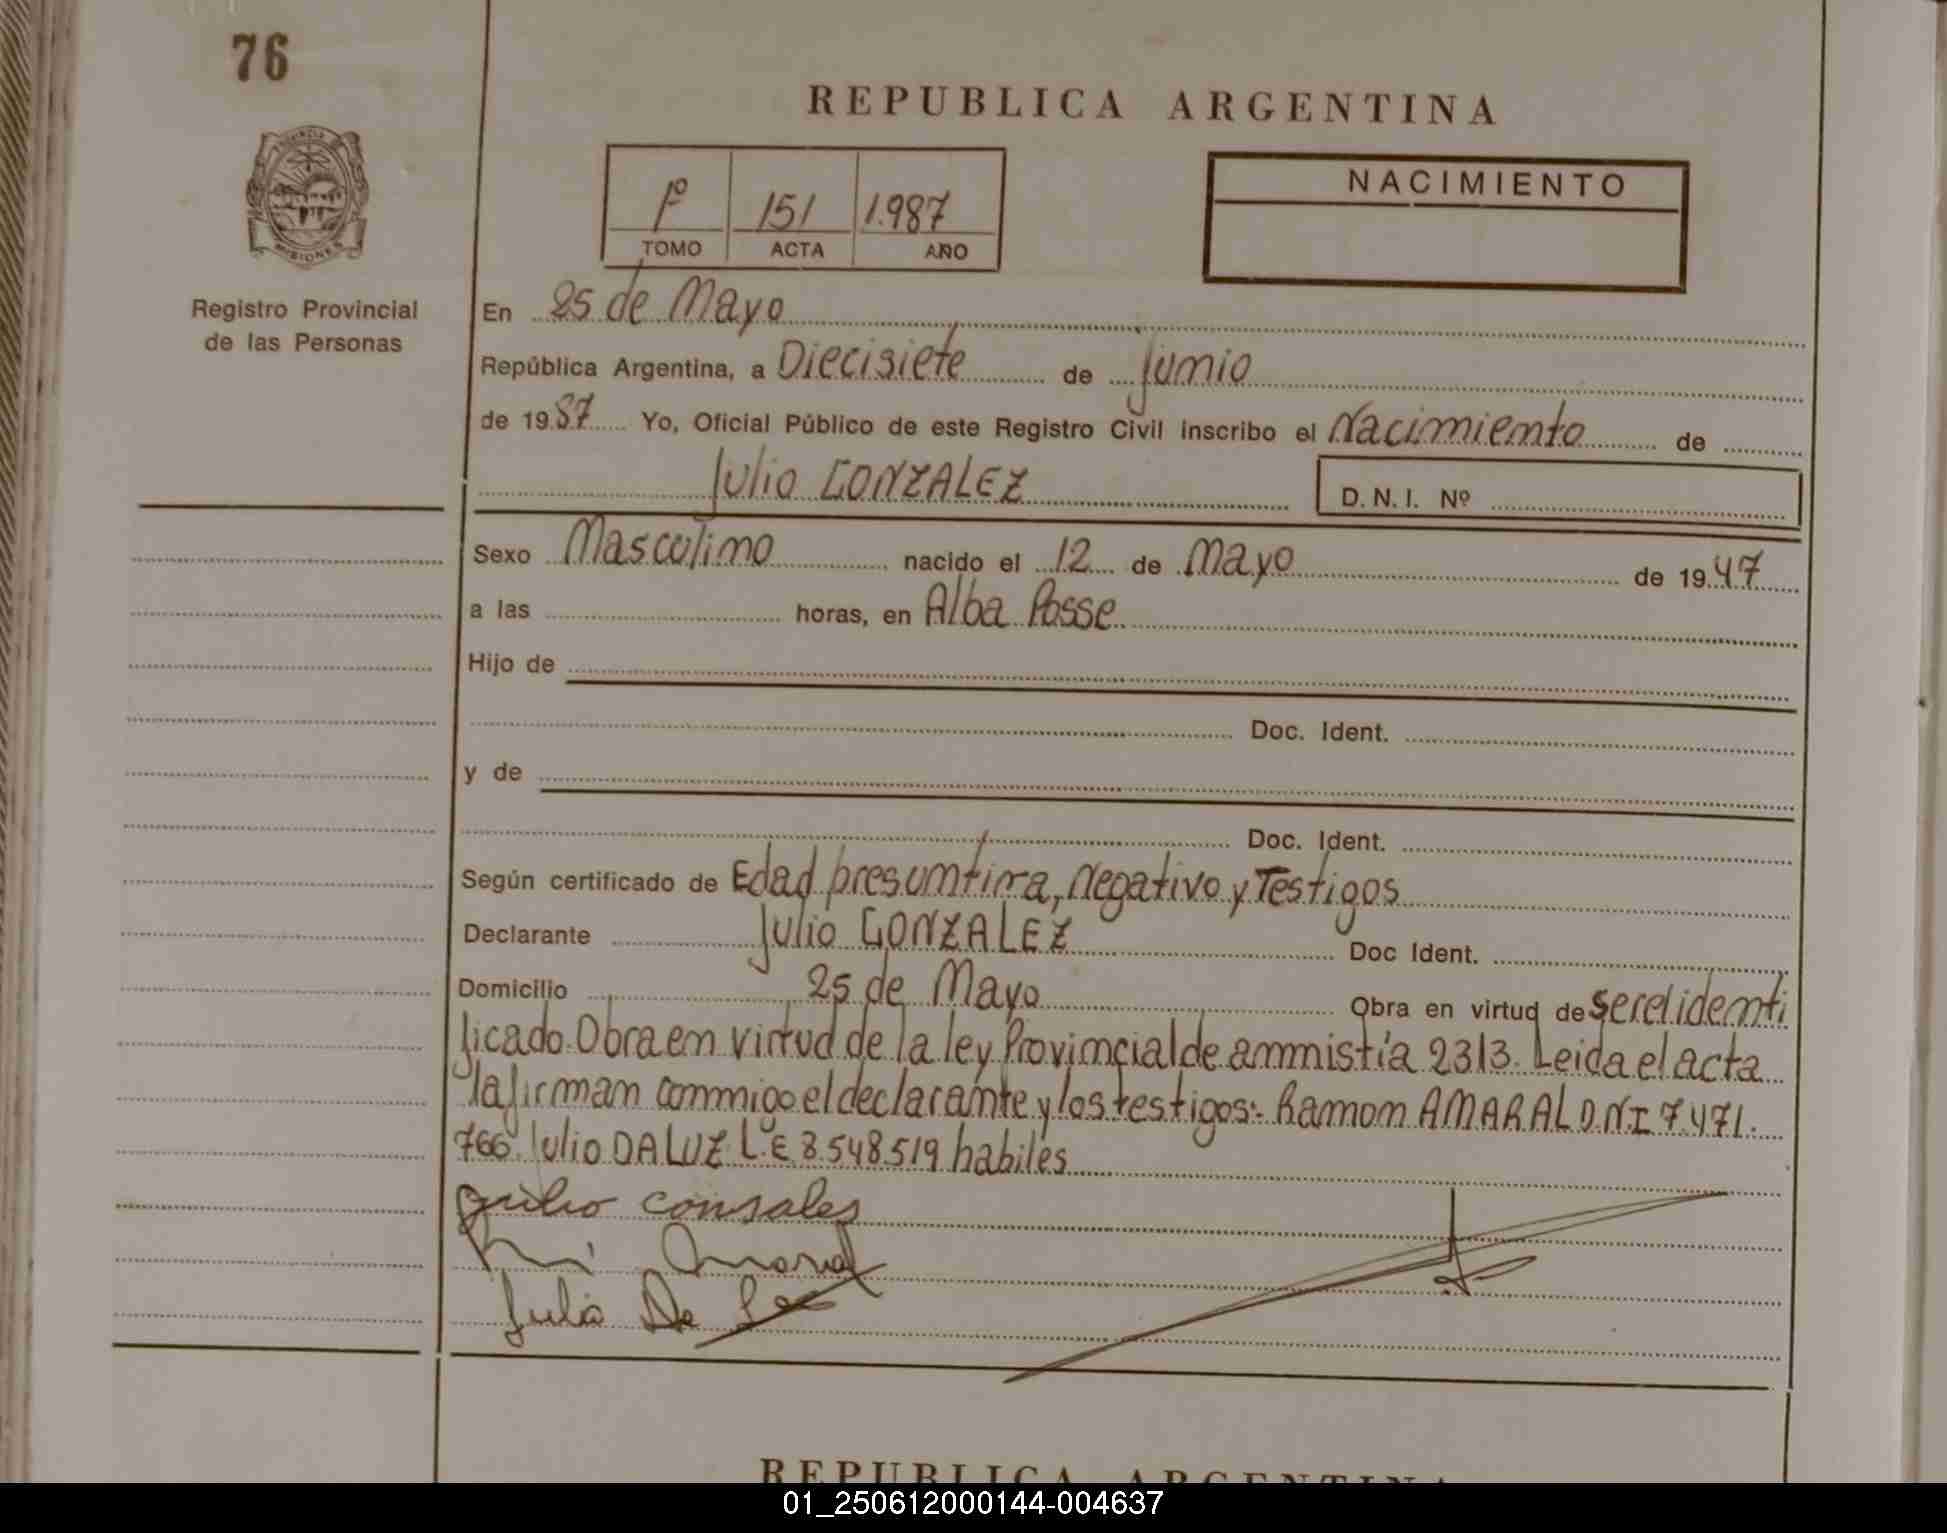 76
REPUBLICA ARGENTINA
1º 151 1.987
TOMO ACTA AÑO
NACIMIENTO
MISIONES
Registro Provincial
de las Personas
En 25 de Mayo
República Argentina, a Diecisiete de junio
de 1987 Yo, Oficial Público de este Registro Civil inscribo el Nacimiento de
Julio GONZALEZ D.N.I. Nº
Sexo Masculino nacido el 12 de Mayo de 1947
a las horas, en Alba Posse
Hijo de
Doc. Ident.
y de
Doc. Ident.
Según certificado de Edad presuntiva, Negativo y Testigos
Declarante Julio GONZALEZ Doc Ident.
Domicilio 25 de Mayo Obra en virtud de ser el identi
ficado. Obra en virtud de la ley Provincial de amnistía 2313. Leida el acta
la firman conmigo el declarante y los testigos:. Ramon AMARAL D.N.I 7.471.
766. Julio DA LUZ L.E 8.548.519 habiles
Julio consales
Amaral
Julio Da Luz
REPUBLICA ARGENTINA
01_250612000144-004637